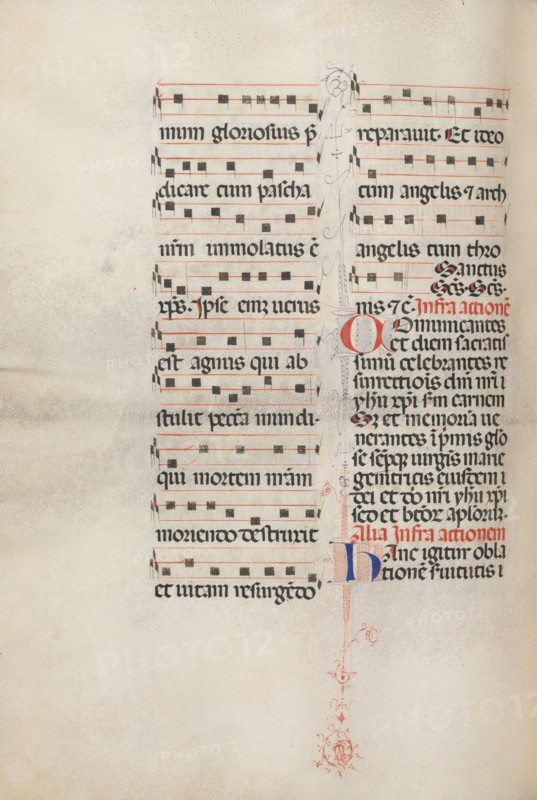 mum gloriosius p̄
dicare cum pascha
nr̄m immolatus ē
xp̄s. Ipse enim uerus
est agnus qui ab
stulit pecc̄a mundi.
qui mortem nr̄am
moriendo destruxit
et uitam resurgēdo
reparauit. Et ideo
cum angelis ⁊ arch
angelis cum thro
Sanctus
Sc̄s. Sc̄s.
nis ⁊ c̄. Infra actionē
Communicantes
et diem sacratis
simū celebrantes re
surrectiōis dn̄i nr̄i i
yhu xp̄i sm carnem
Sȝ et memoria ue
nerantes ī p̄mis glo
se semp̱qȝ uirgīs marie
genitricis eiusdem i
dei et dō nr̄i yhu xp̄i
sed et btōꝝ aplorū.
Alia Infra actionem
Hanc igitur obla
tionē seruitutis i
PHOTO12